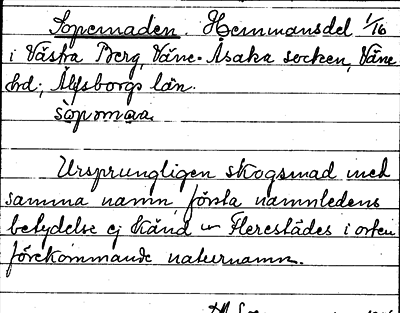 Sopemaden. Hemmansdel 1/16
i Västra Berg, Väne-Åsaka socken, Väne
hd., Älvsborgs län.
sòpəmaa
Ursprungligen skogsmad med
samma namn, första namnledens
betydelse ej känd – Flerestädes i orten
förekommande naturnamn.